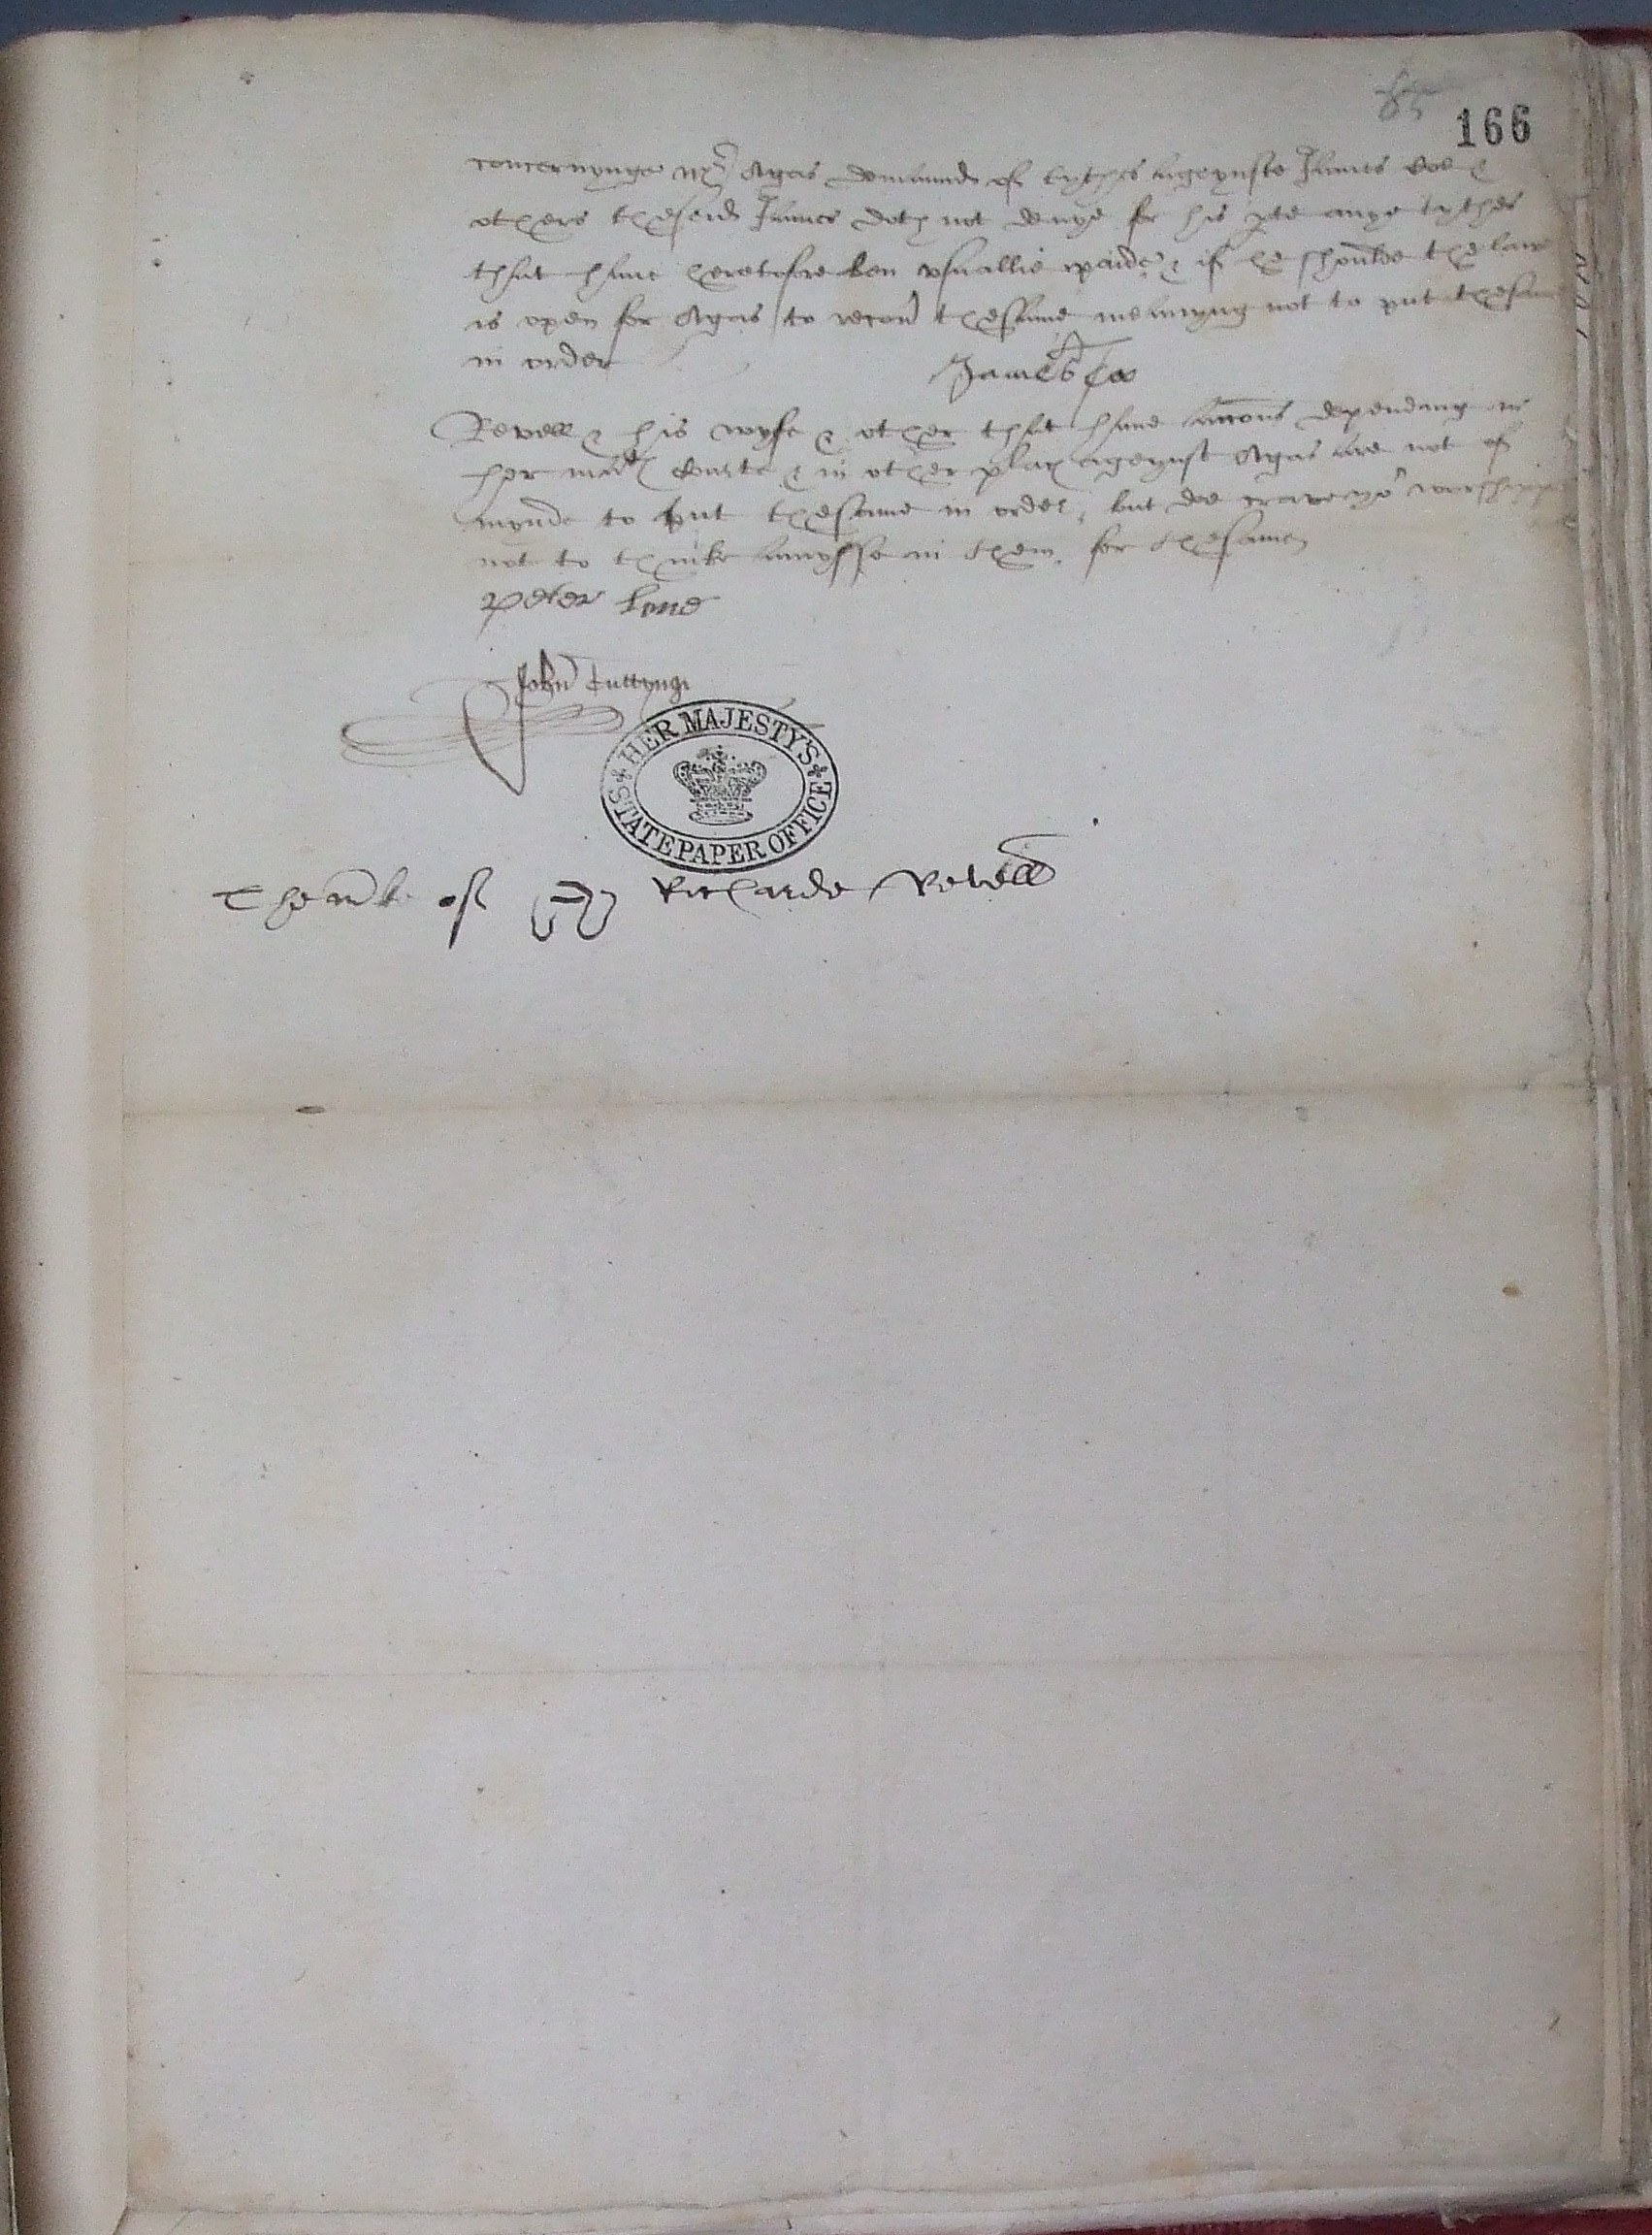 85
166
concernynge Agas demaunde of tythes ageynste James Coo &
others theseid James doth not denye for his pte anye tythes
that haue heretofore ben vsuallie paide & if he shoulde the law
is open for Agas to recou thesame meanyng not to put thesame
in order
James Coo
Revell & his wyfe & other that haue accons dependang in
her ma Courte & in other place ageynst Agas are not of
mynde to put thesame in order, but doe crave yor worshippe
not to thinke amysse in them, for thesame
Peter Lone
John Cuttyng
HER MAJESTY'S
STATE PAPER OFFICE
The mke of Richarde Revell